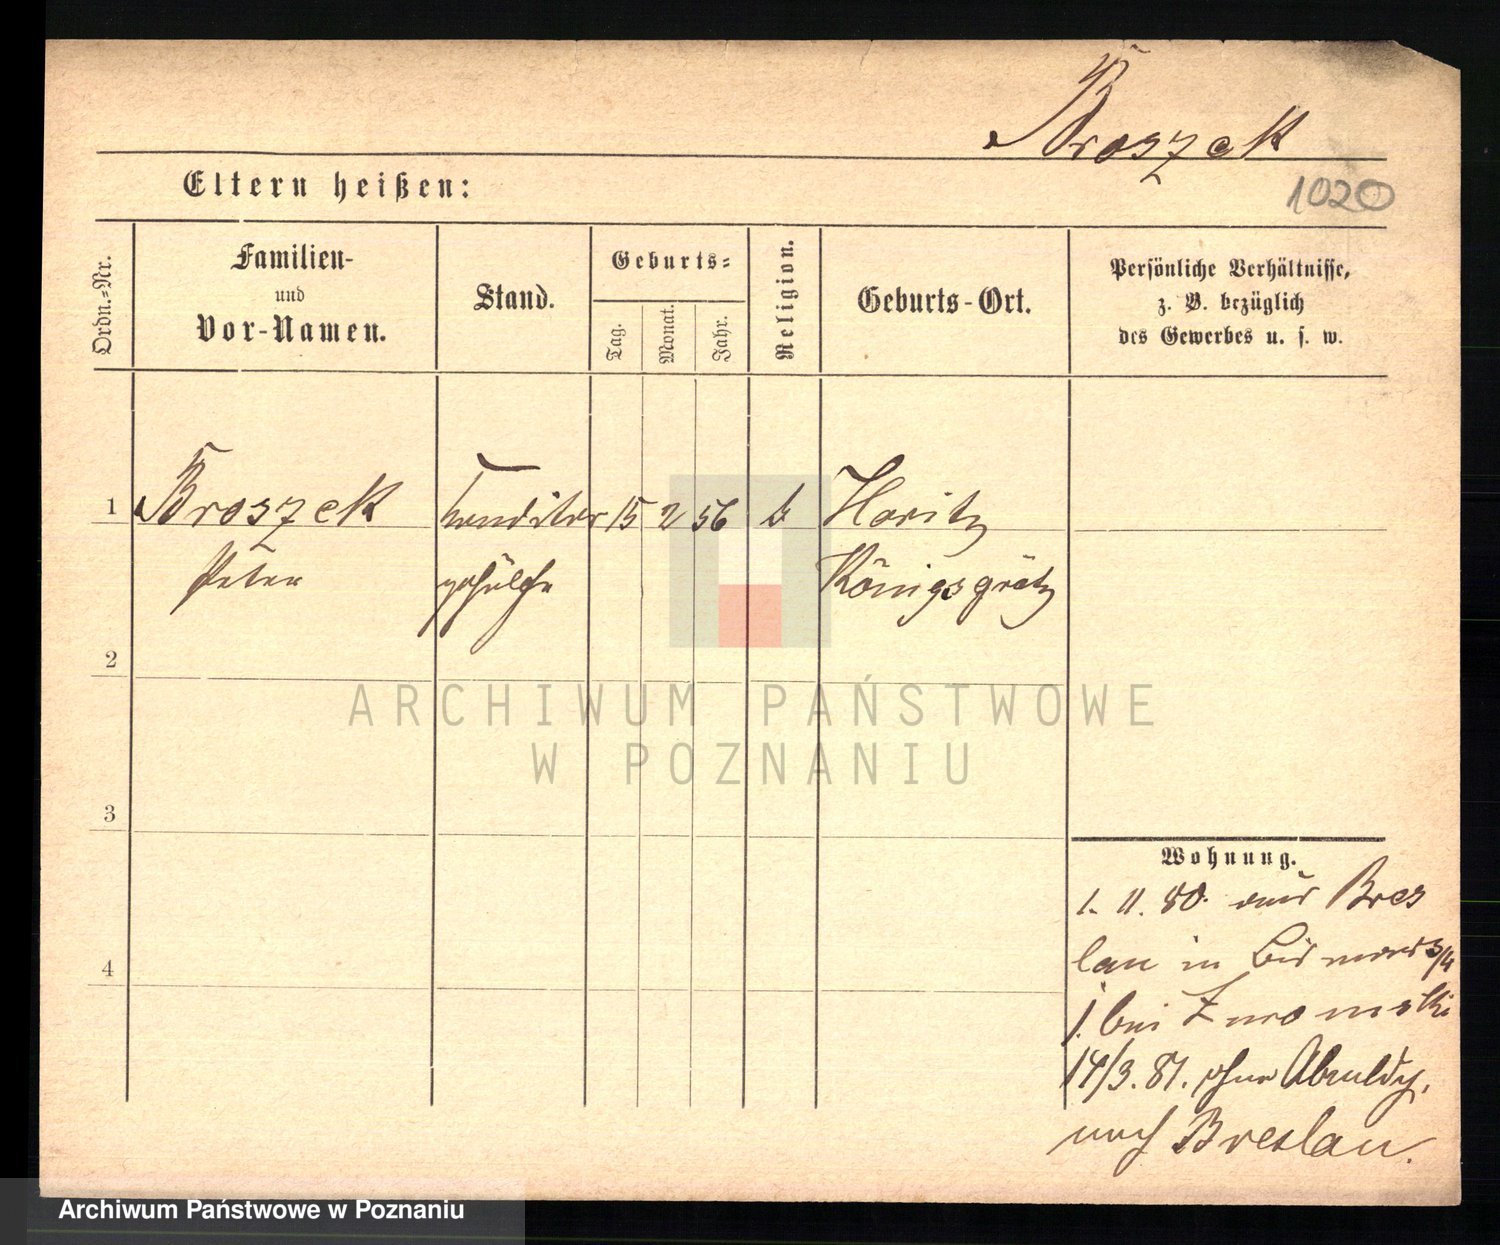 Broszek
Eltern heißen:
1020
Ordn.=Nr.
Familien-
und
Vor-Namen.
Stand.
Geburts=
Tag.
Monat.
Jahr.
Religion.
Geburts-Ort.
Persönliche Verhältnisse,
z. B. bezüglich
des Gewerbes u. s. w.
1 Broszek Konditor 15 2 56 k Horitz
Peter gehülfe Königsgrätz
2
ARCHIWUM PAŃSTWOWE
W POZNANIU
3
Wohnung.
1. 11. 80. aus Bres
lau in Bismarcks/4
bei Zuromski
4
14/3. 81. ohne Abmeldg.
nach Breslau.
Archiwum Państwowe w Poznaniu